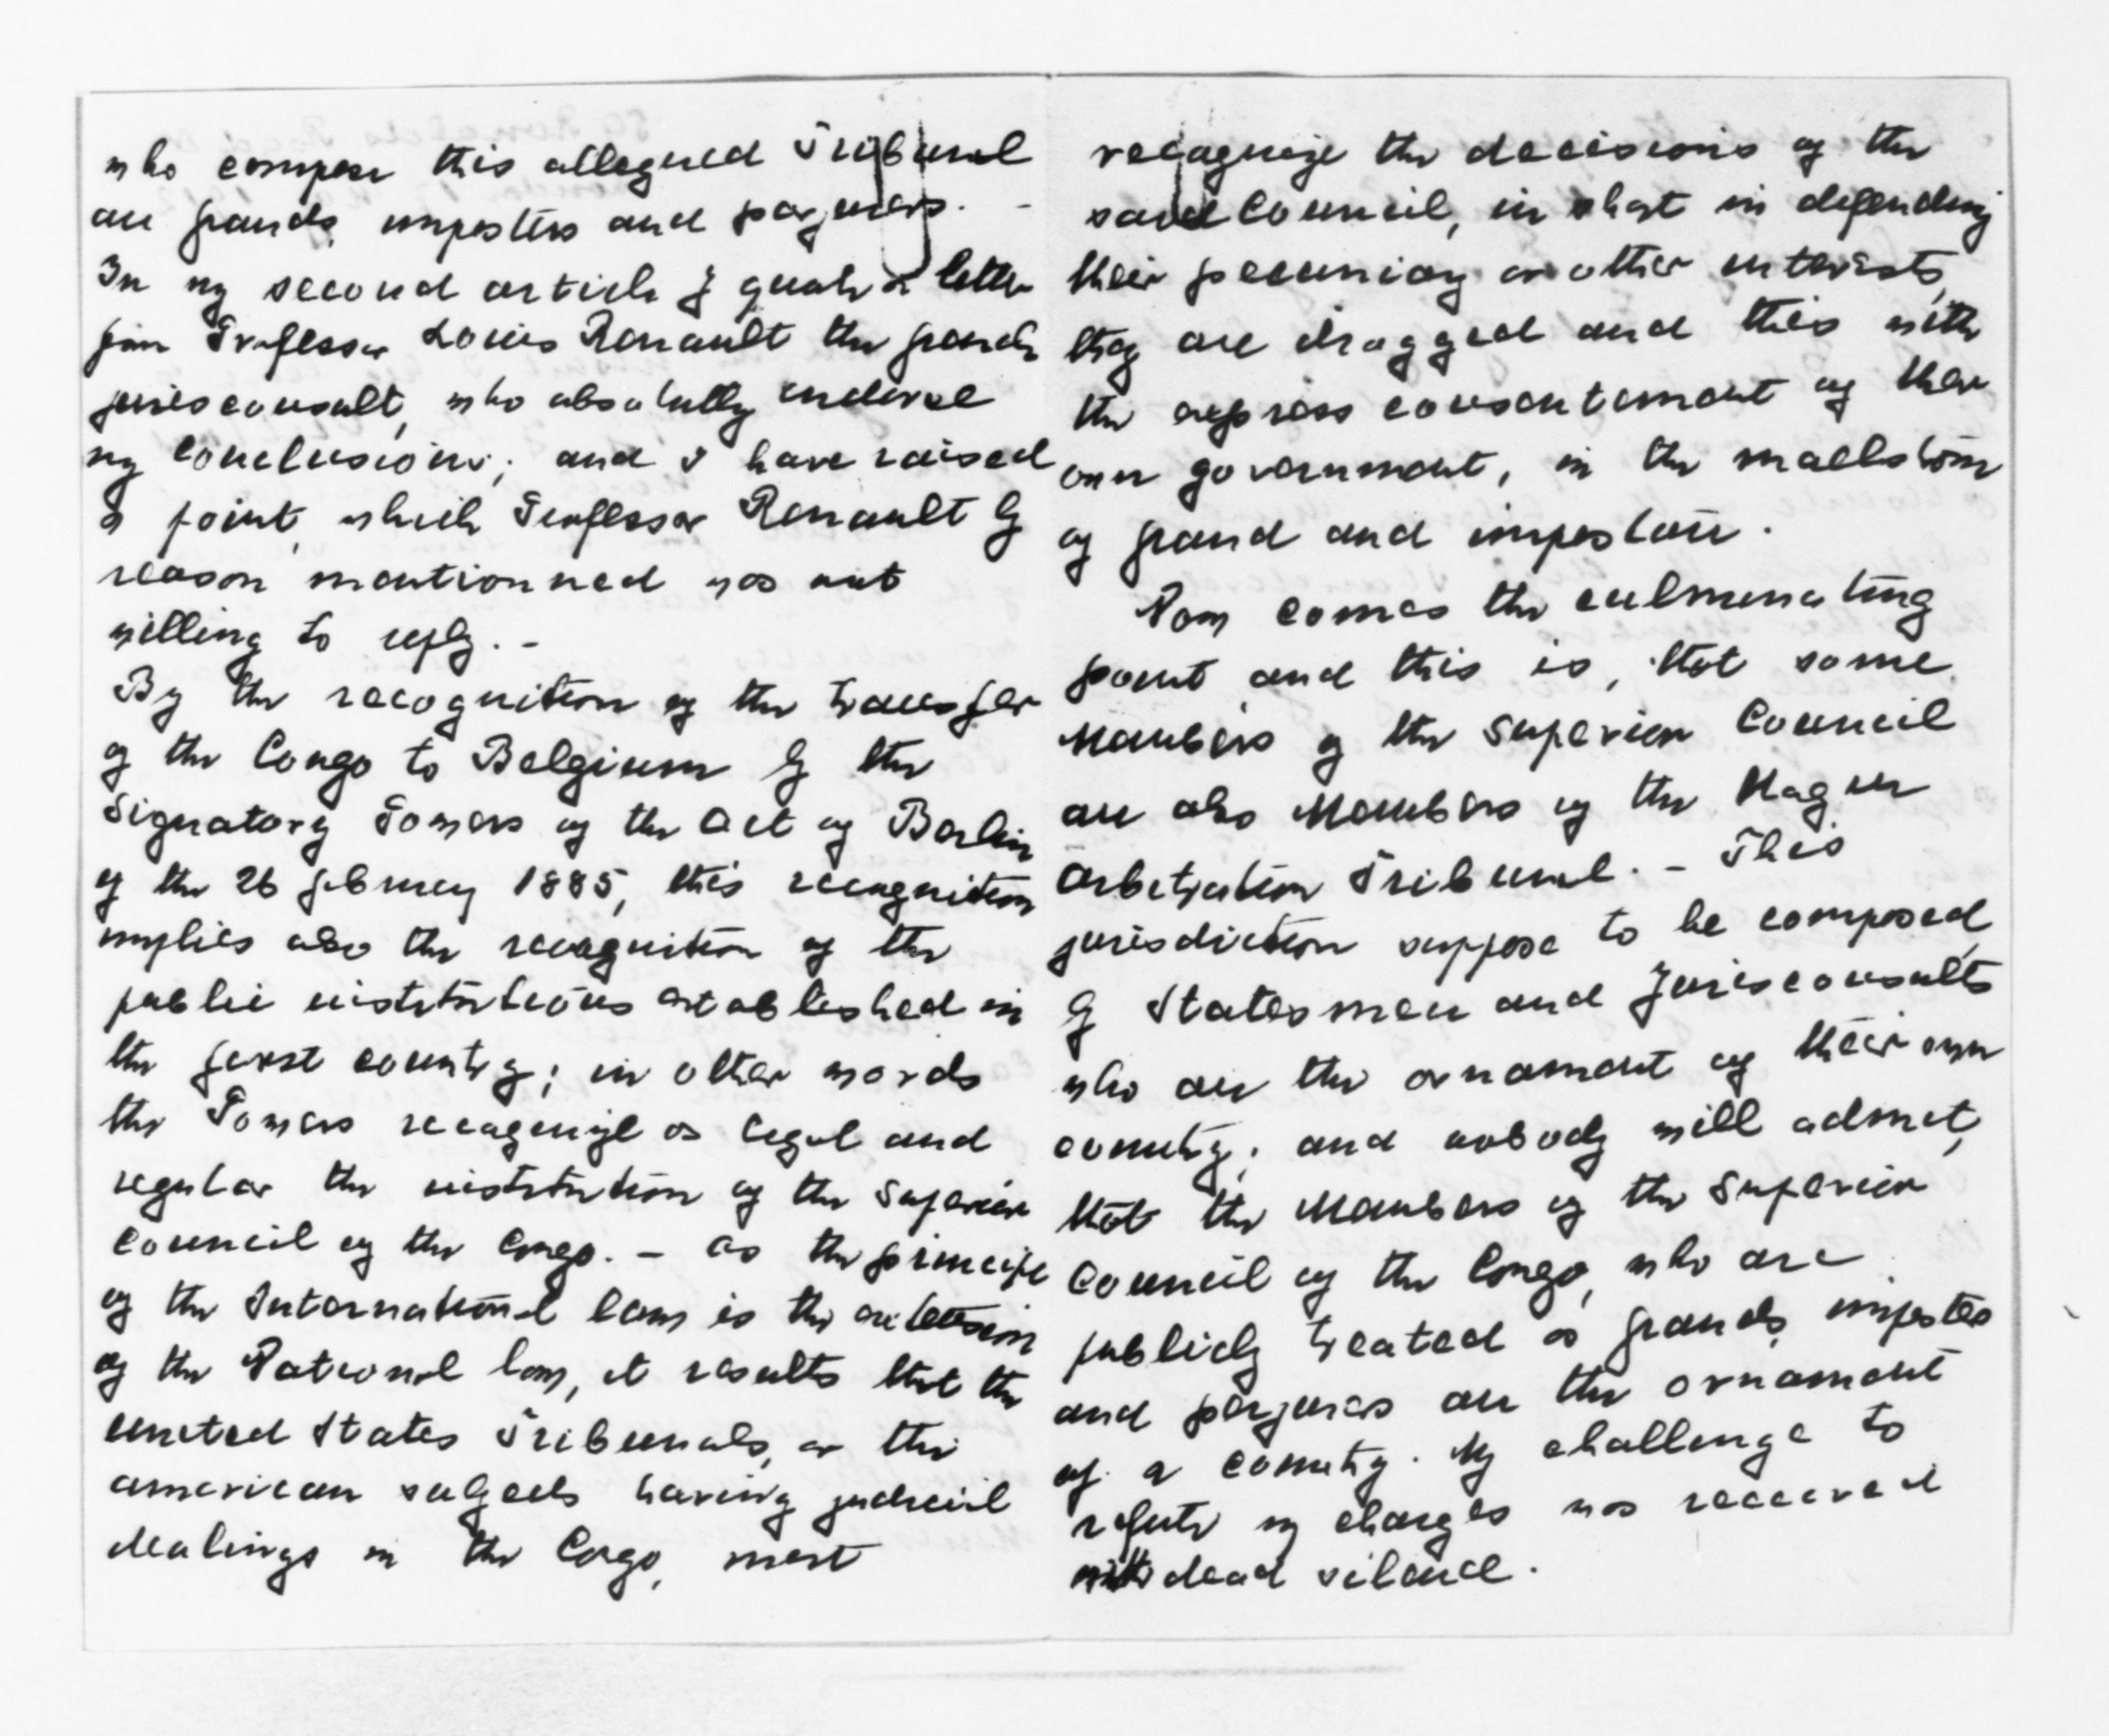 who compose this allegued Tribunal
are frauds, impostors and perjurers. -
In my second article I quote a letter
from Professor Louis Renault the french
jurisconsult, who absolutely endorse
my conclusions; and I have raised
a point, which Professor Renault by
reason mentionned was not
willing to reply. -
By the recognition of the transfer
of the Congo to Belgium by the
Signatory Powers of the Act of Berlin
of the 26 february 1885, this recognition
implies also the recognition of the
public institutions established in
the first country; in other words
the Powers recognize as legal and
regular the institution of the Superior
Council of the Congo. - As the principe
of the International law is the extension
of the National law, it results that the
United States Tribunals, or the
american subjects having judicial
dealings in the Congo, must
recognize the decisions of the
said Council, in short in defending
their pecuniary or other interests,
they are dragged and this with
the express consentement of their
own government, in the maelstom
of fraud and imposture.
Now comes the culminating
point and this is, that some
Members of the Superior Council
are also Members of the Hague
Arbitration Tribunal. - This
jurisdiction suppose to be composed,
by Statesmen and Jurisconsults
who are the ornament of their own
country; and nobody will admit,
that the Members of the Superior
Council of the Congo, who are
publicly treated as frauds, impostors
and perjurers are the ornament
of a country. My challenge to
refute my charges was received
with dead silence.